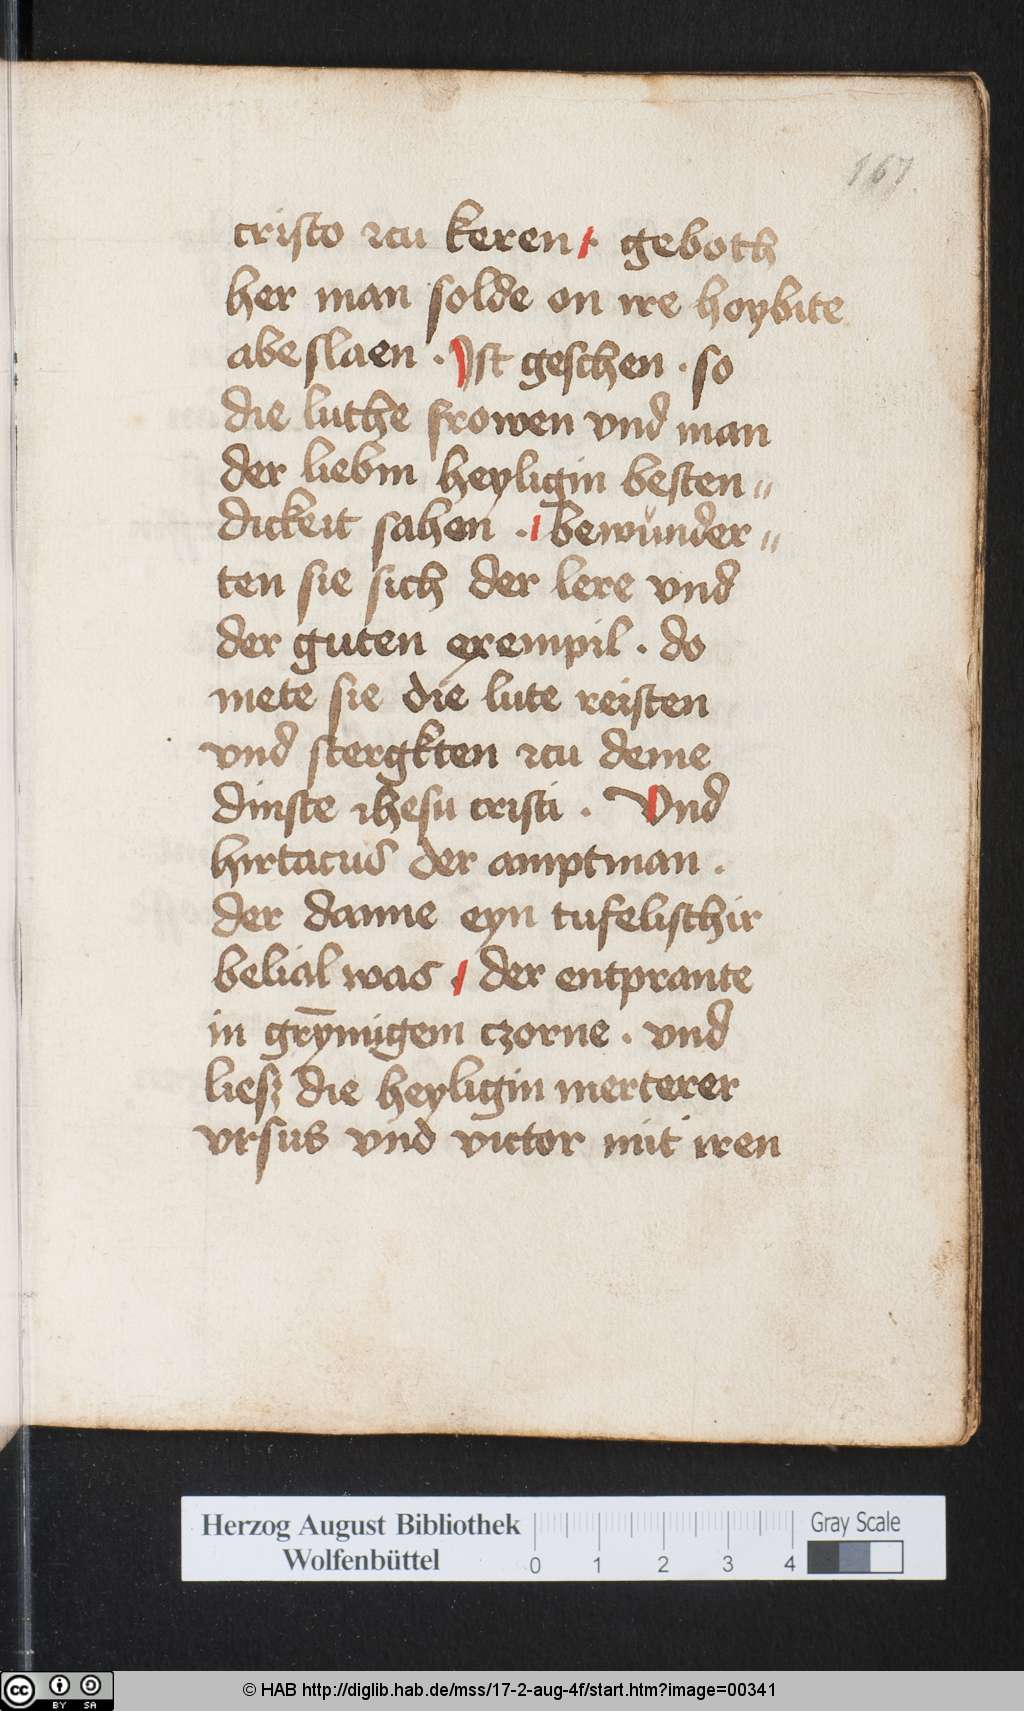 167
cristo zcu keren · geboth
her man solde on ire hoybite
abeslaen · Ist geschen · so
die luthe frowen vnd man
der liebin heyligin besten〃
dickeit sahen · bewůnder〃
ten sie sich der lere vnd
der guten exempil · do
mete sie die lute reisten
vnd stergkten zcu deme
dinste ihesu cristi · Vnd
hirtacus der amptman ·
der danne eyn tufelischir
belial was · der entprante
in grȳmigem czorne · vnd
liesz die heyligin merterer
vrsus vnd victor mit iren
Herzog August Bibliothek
Wolfenbüttel
0 1 2 3 4
Gray Scale
cc BY SA
© HAB http://diglib.hab.de/mss/17-2-aug-4f/start.htm?image=00341